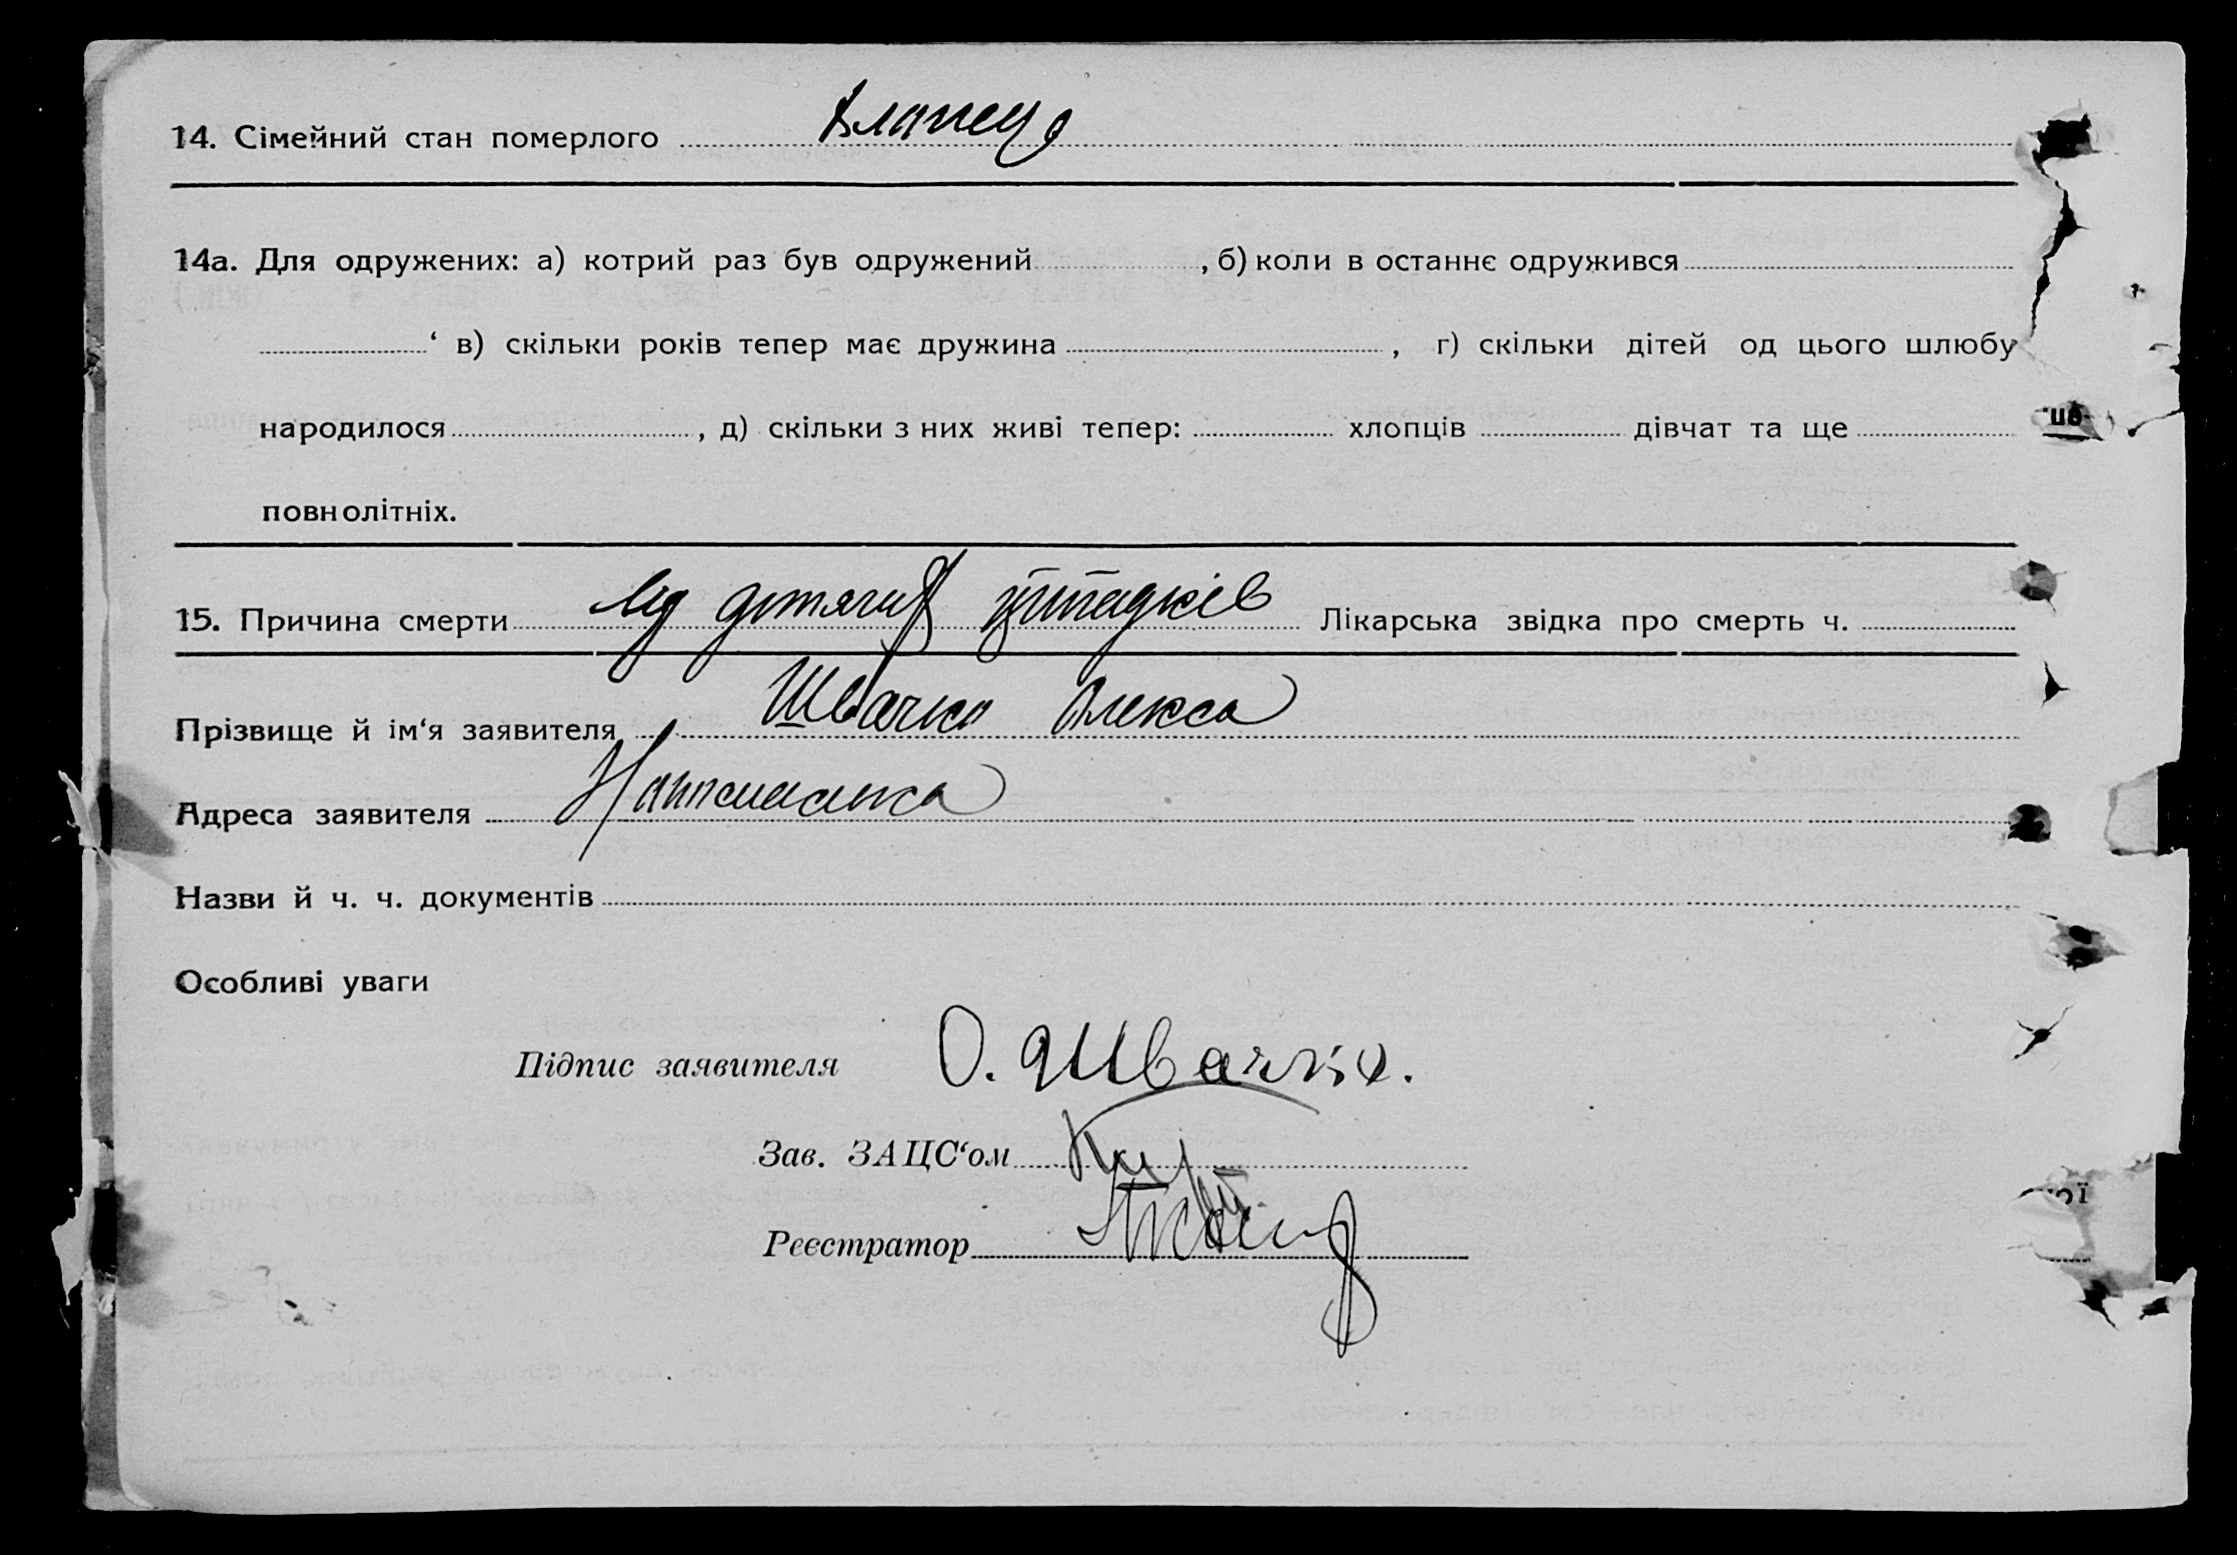 14. Сімейний стан померлого хлопець
14а. Для одружених: а) котрий раз був одружений , б) коли в останнє одружився
‘ в) скільки років тепер має дружина , г) скільки дітей од цього шлюбу
народилося , д) скільки з них живі тепер: хлопців дівчат та ще
повнолітніх.
15. Причина смерти від дитячих припадків Лікарська звідка про смерть ч.
Прізвище й ім‘я заявителя Швачко Олекса
Адреса заявителя
Назви й ч. ч. документів
Особливі уваги
Підпис заявителя О. Швачко.
Зав. ЗАЦС‘ом
Реєстратор